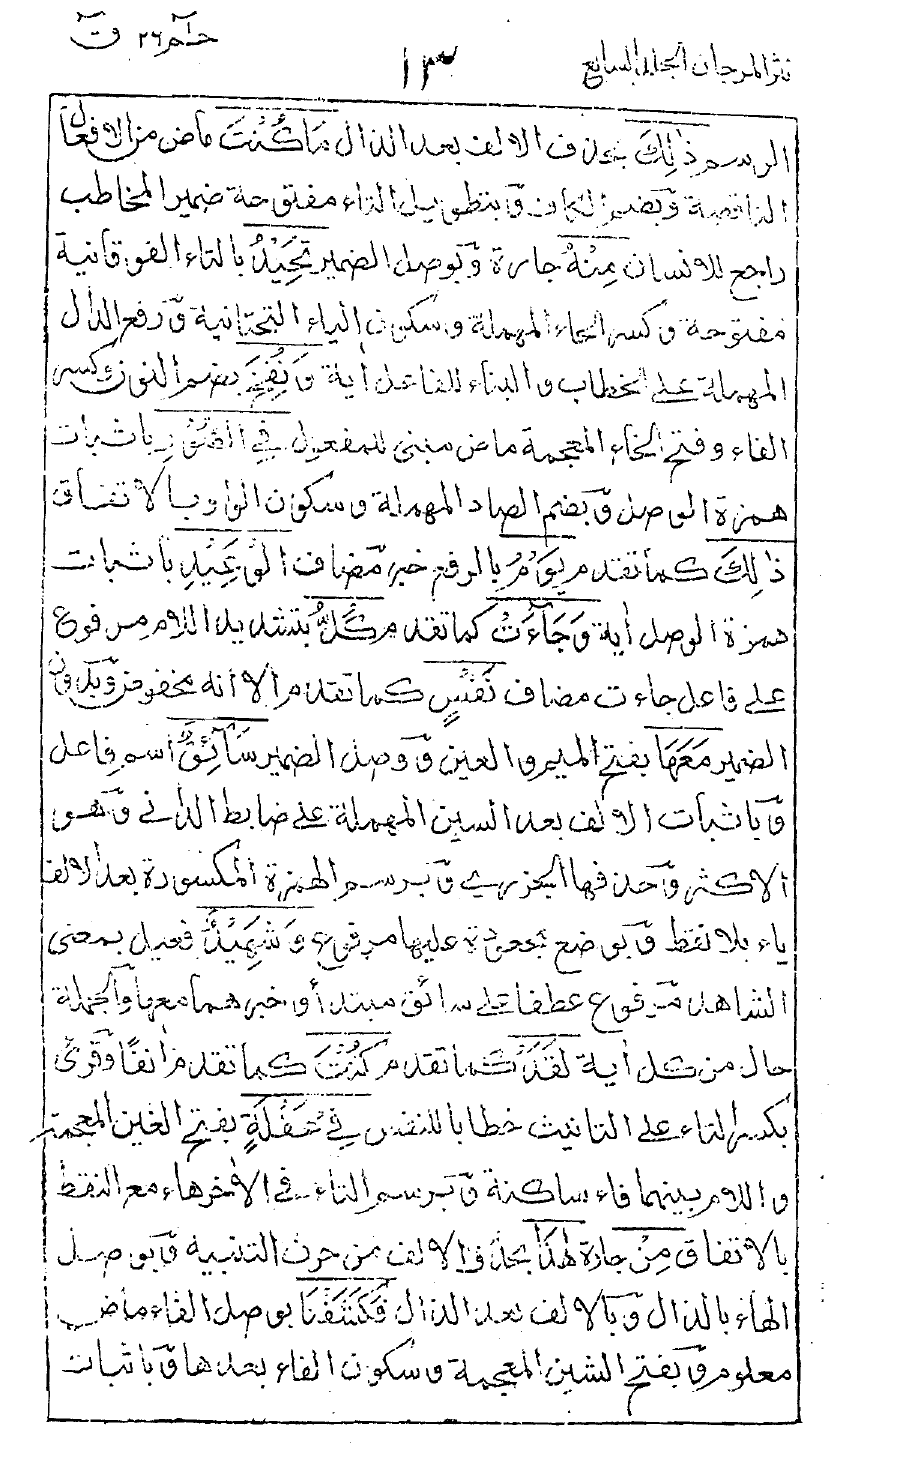 نثر المرجان الجلد السابع
١٣
حٰم ٢٦ ق
الرسم ذٰلِكَ بحذف الالف بعد الذال مَاكُنْتَ ماض من الافعال
الناقصة وبضم الكاف وبتطويل التاء مفتوحة ضمير المخاطب
راجع للانسان مِنْهُ جارة وبوصل الضمير تَحِيْدُ بالتاء الفوقانية
مفتوحة وكسر الحاء المهملة وسكون الياء التحتانية ورفع الدال
المهملة على الخطاب والبناء للفاعل اٰية وَنُفِخَ بضم النون وكسر
الفاء وفتح الخاء المعجمة ماض مبنى للمفعول فِي الصُّوْرِ باثبات
همزة الوصل وبضم الصاد المهملة وسكون الواو بالاتفاق
ذٰلِكَ كما تقدم يَوْمُ بالرفع خبر مضاف الْوَعِيْدِ باثبات
همزة الوصل اٰية وَجَآءَتْ كما تقدم كُلُّ بتشديد اللام مرفوع
على فاعل جاءت مضاف نَفْسٍ كما تقدم الا انه مخفوض وبدون
الضمير مَعَهَا بفتح الميم والعين ووصل الضمير سَآئِقٌ اسم فاعل
وباثبات الالف بعد السين المهملة على ضابط الدانى وهو
الاكثر وحذفها الجزرى وبرسم الهمزة المكسورة بعد الالف
ياء بلا نقط وبوضع مجعودة عليها مرفوع وَشَهِيْدٌ فعيل بمعنى
الشاهد مرفوع عطفا على سائق مبتدأ وخبرهما معها والجملة
حال من كل اٰية لَقَدْ كما تقدم كُنْتَ كما تقدم اٰنفا وقرئ
بكسر التاء على التانيث خطابا للنفس فِيْ غَفْلَةٍ بفتح الغين المعجمة
واللام بينهما فاء ساكنة وبرسم التاء فى الاٰخر هاء مع النقط
بالاتفاق مِنْ جارة هٰذَا بحذف الالف من حرف التنبيه وبوصل
الهاء بالذال وبالالف بعد الذال فَكَشَفْنَا بوصل الفاء ماض
معلوم وبفتح الشين المعجمة وسكون الفاء بعدها وباثبات